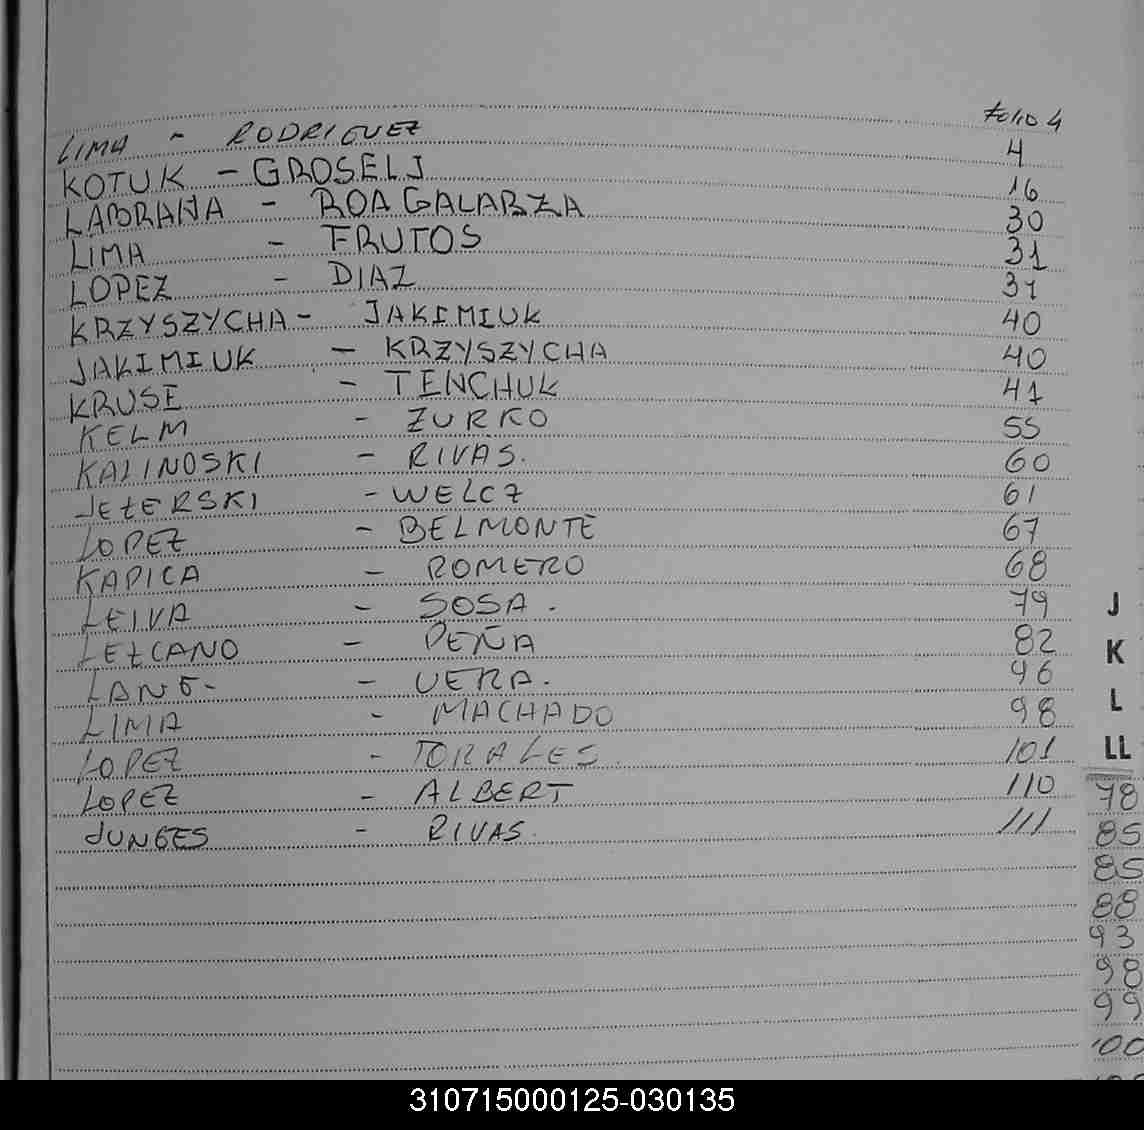 LIMA - RODRIGUEZ Folio 4
KOTUK - GROSELJ 4
LABRAÑA - ROA GALARZA 16
LIMA - FRUTOS 30
LOPEZ - DIAZ 31
KRZYSZYCHA - JAKIMIUK 37
JAKIMIUK - KRZYSZYCHA 40
KRUSE - TENCHUK 40
KELM - ZURKO 41
KALINOSKI - RIVAS. 55
JEZERSKI - WELCZ 60
LOPEZ - BELMONTE 61
KAPICA - ROMERO 67
LEIVA - SOSA. 68
LEZCANO - PEÑA 79
LANG - VERA. 82
LIMA - MACHADO 96
LOPEZ - TORALES. 98
LOPEZ - ALBERT 101
JUNGES - RIVAS. 110
111
J
K
L
LL
78
85
85
88
93
98
99
100
310715000125-030135